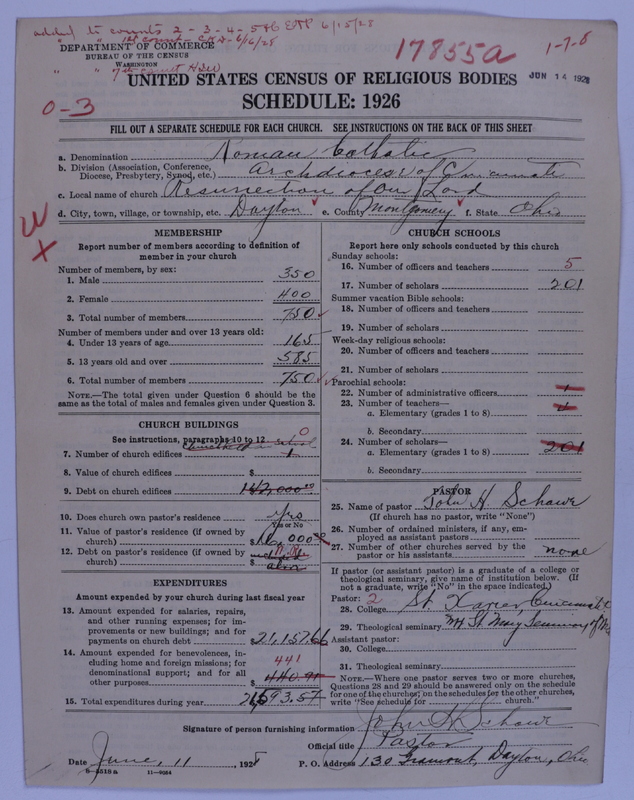 added to counts 2-3-4-5&6 EHP 6/15/28
" " 1st count - CKD - 6/16/28
" " 7th count HSW
17855a
1-7-8
DEPARTMENT OF COMMERCE
BUREAU OF THE CENSUS
WASHINGTON
UNITED STATES CENSUS OF RELIGIOUS BODIES
JUN 14 192
SCHEDULE: 1926
0-3
FILL OUT A SEPARATE SCHEDULE FOR EACH CHURCH. SEE INSTRUCTIONS ON THE BACK OF THIS SHEET
a. Denomination Roman Catholic
b. Division (Association, Conference, Diocese, Presbytery, Synod, etc.) Archdiocese of Cincinnati
c. Local name of church Resurrection of Our Lord
d. City, town, village, or township, etc. Dayton e. County Montgomery f. State Ohio
W
X
MEMBERSHIP
Report number of members according to definition of
member in your church
Number of members, by sex:
1. Male 350
2. Female 400
3. Total number of members 750
Number of members under and over 13 years old:
4. Under 13 years of age 165
5. 13 years old and over 585
6. Total number of members 750
NOTE.—The total given under Question 6 should be the
same as the total of males and females given under Question 3.
CHURCH BUILDINGS
See instructions, paragraphs 10 to 12
0
Church in a school
7. Number of church edifices 1
8. Value of church edifices $
9. Debt on church edifices 142,000.00
10. Does church own pastor's residence Yes
Yes or No
11. Value of pastor's residence (if owned by
church) $16,000
12. Debt on pastor's residence (if owned by
church) $ included above
EXPENDITURES
Amount expended by your church during last fiscal year
13. Amount expended for salaries, repairs,
and other running expenses; for im-
provements or new buildings; and for
payments on church debt 21,157.66
14. Amount expended for benevolences, in-
cluding home and foreign missions; for
denominational support; and for all
441
other purposes $ 440.91
15. Total expenditures during year 21,593.57
CHURCH SCHOOLS
Report here only schools conducted by this church
Sunday schools:
16. Number of officers and teachers 5
17. Number of scholars 201
Summer vacation Bible schools:
18. Number of officers and teachers
19. Number of scholars
Week-day religious schools:
20. Number of officers and teachers
21. Number of scholars
Parochial schools:
22. Number of administrative officers 1
23. Number of teachers—
a. Elementary (grades 1 to 8) 4
b. Secondary
24. Number of scholars—
a. Elementary (grades 1 to 8) 201
b. Secondary
PASTOR
25. Name of pastor John H Schawe
(If church has no pastor, write "None")
26. Number of ordained ministers, if any, em-
ployed as assistant pastors
27. Number of other churches served by the
pastor or his assistants none
If pastor (or assistant pastor) is a graduate of a college or
theological seminary, give name of institution below. (If
not a graduate, write "No" in the space indicated.)
Pastor: 2
28. College St. Xavier, Cincinnati
29. Theological seminary Mt St Mary Seminary of
Assistant pastor:
30. College
31. Theological seminary
NOTE.—Where one pastor serves two or more churches,
Questions 28 and 29 should be answered only on the schedule
for one of the churches; on the schedules for the other churches,
write "See schedule for church."
Signature of person furnishing information John H Schawe
Official title Pastor
Date June, 11, 1928 P. O. Address 130 Gramont, Dayton, Ohio
8-5518a 11-9064